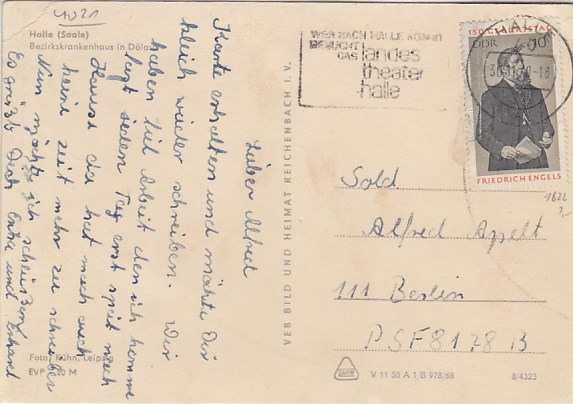 4021
Halle (Saale)
Bezirkskrankenhaus in Dölau
Lieber Alfred
Karte erhalten und möchte Dir
gleich wieder schreiben. Wir
haben viel Arbeit den ich komme
fast jeden Tag erst spät nach
Hause da hat mach auch
keine zeit mehr zu schreiben
Nun möchte ich schließen
Es grüßt Dich Erika und Erhard
Foto: Kühn, Leipzig
EVP 0,20 M
VEB BILD UND HEIMAT REICHENBACH I. V.
WER NACH HALLE KOMMT
BESUCHT
DAS landes
theater
halle
HALLE
150. GEBURTSTAG
DDR 10
FRIEDRICH ENGELS
1622
Sold
Alfred Appelt
111 Berlin
PSF 8178 B
V 11 50 A 1/B 978/68
8/4323